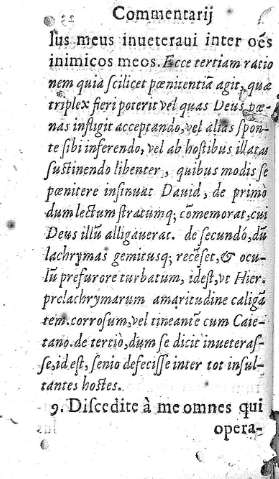 Commentarij
lus meus inueteraui inter oẽs
inimicos meos. Ecce tertiam ratio
nem quia scilicet pœnitentiã agit, quæ
triplex fieri poterit vel quas Deus pœ-
nas infligit acceptando, vel alias spon-
te sibi inferendo, vel ab hostibus illatas
sustinendo libenter, quibus modis se
pœnitere insinuat Dauid, de primo
dum lectum stratumq; cõmemorat, cui
Deus illũ alligauerat. de secundo, dũ
lachrymas gemitusq; recẽset, & ocu-
lũ præ furore turbatum, id est, vt Hier.
præ lachrymarum amaritudine caligã
tem. corrosum, vel tineantẽ cum Caie-
tano. de tertio, dum se dicit inueteras-
se, id est, senio defecisse inter tot insul-
tantes hostes.
9. Discedite à me omnes qui
opera-